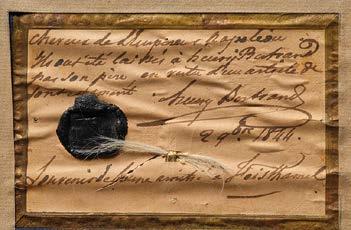 Cheveux de L'Empereur Napoleon
Ils ont été laissés à henry Bertrand
par son père en vertu d'un article de
son testament
henry Bertrand
2 9bre 1844
Souvenir de bonne amitié à Feisthamel